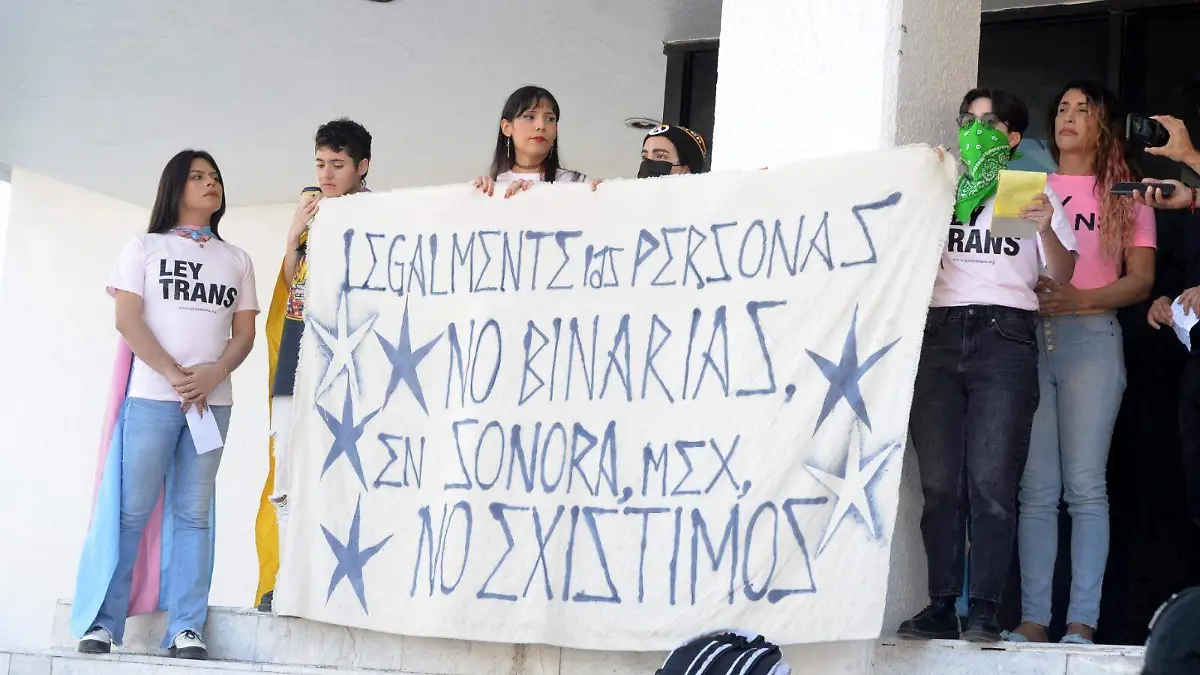 LEGALMENTE las PERSONAS
NO BINARIAS,
EN SONORA, MEX,
NO EXISTIMOS
LEY
TRANS
LEY
TRANS